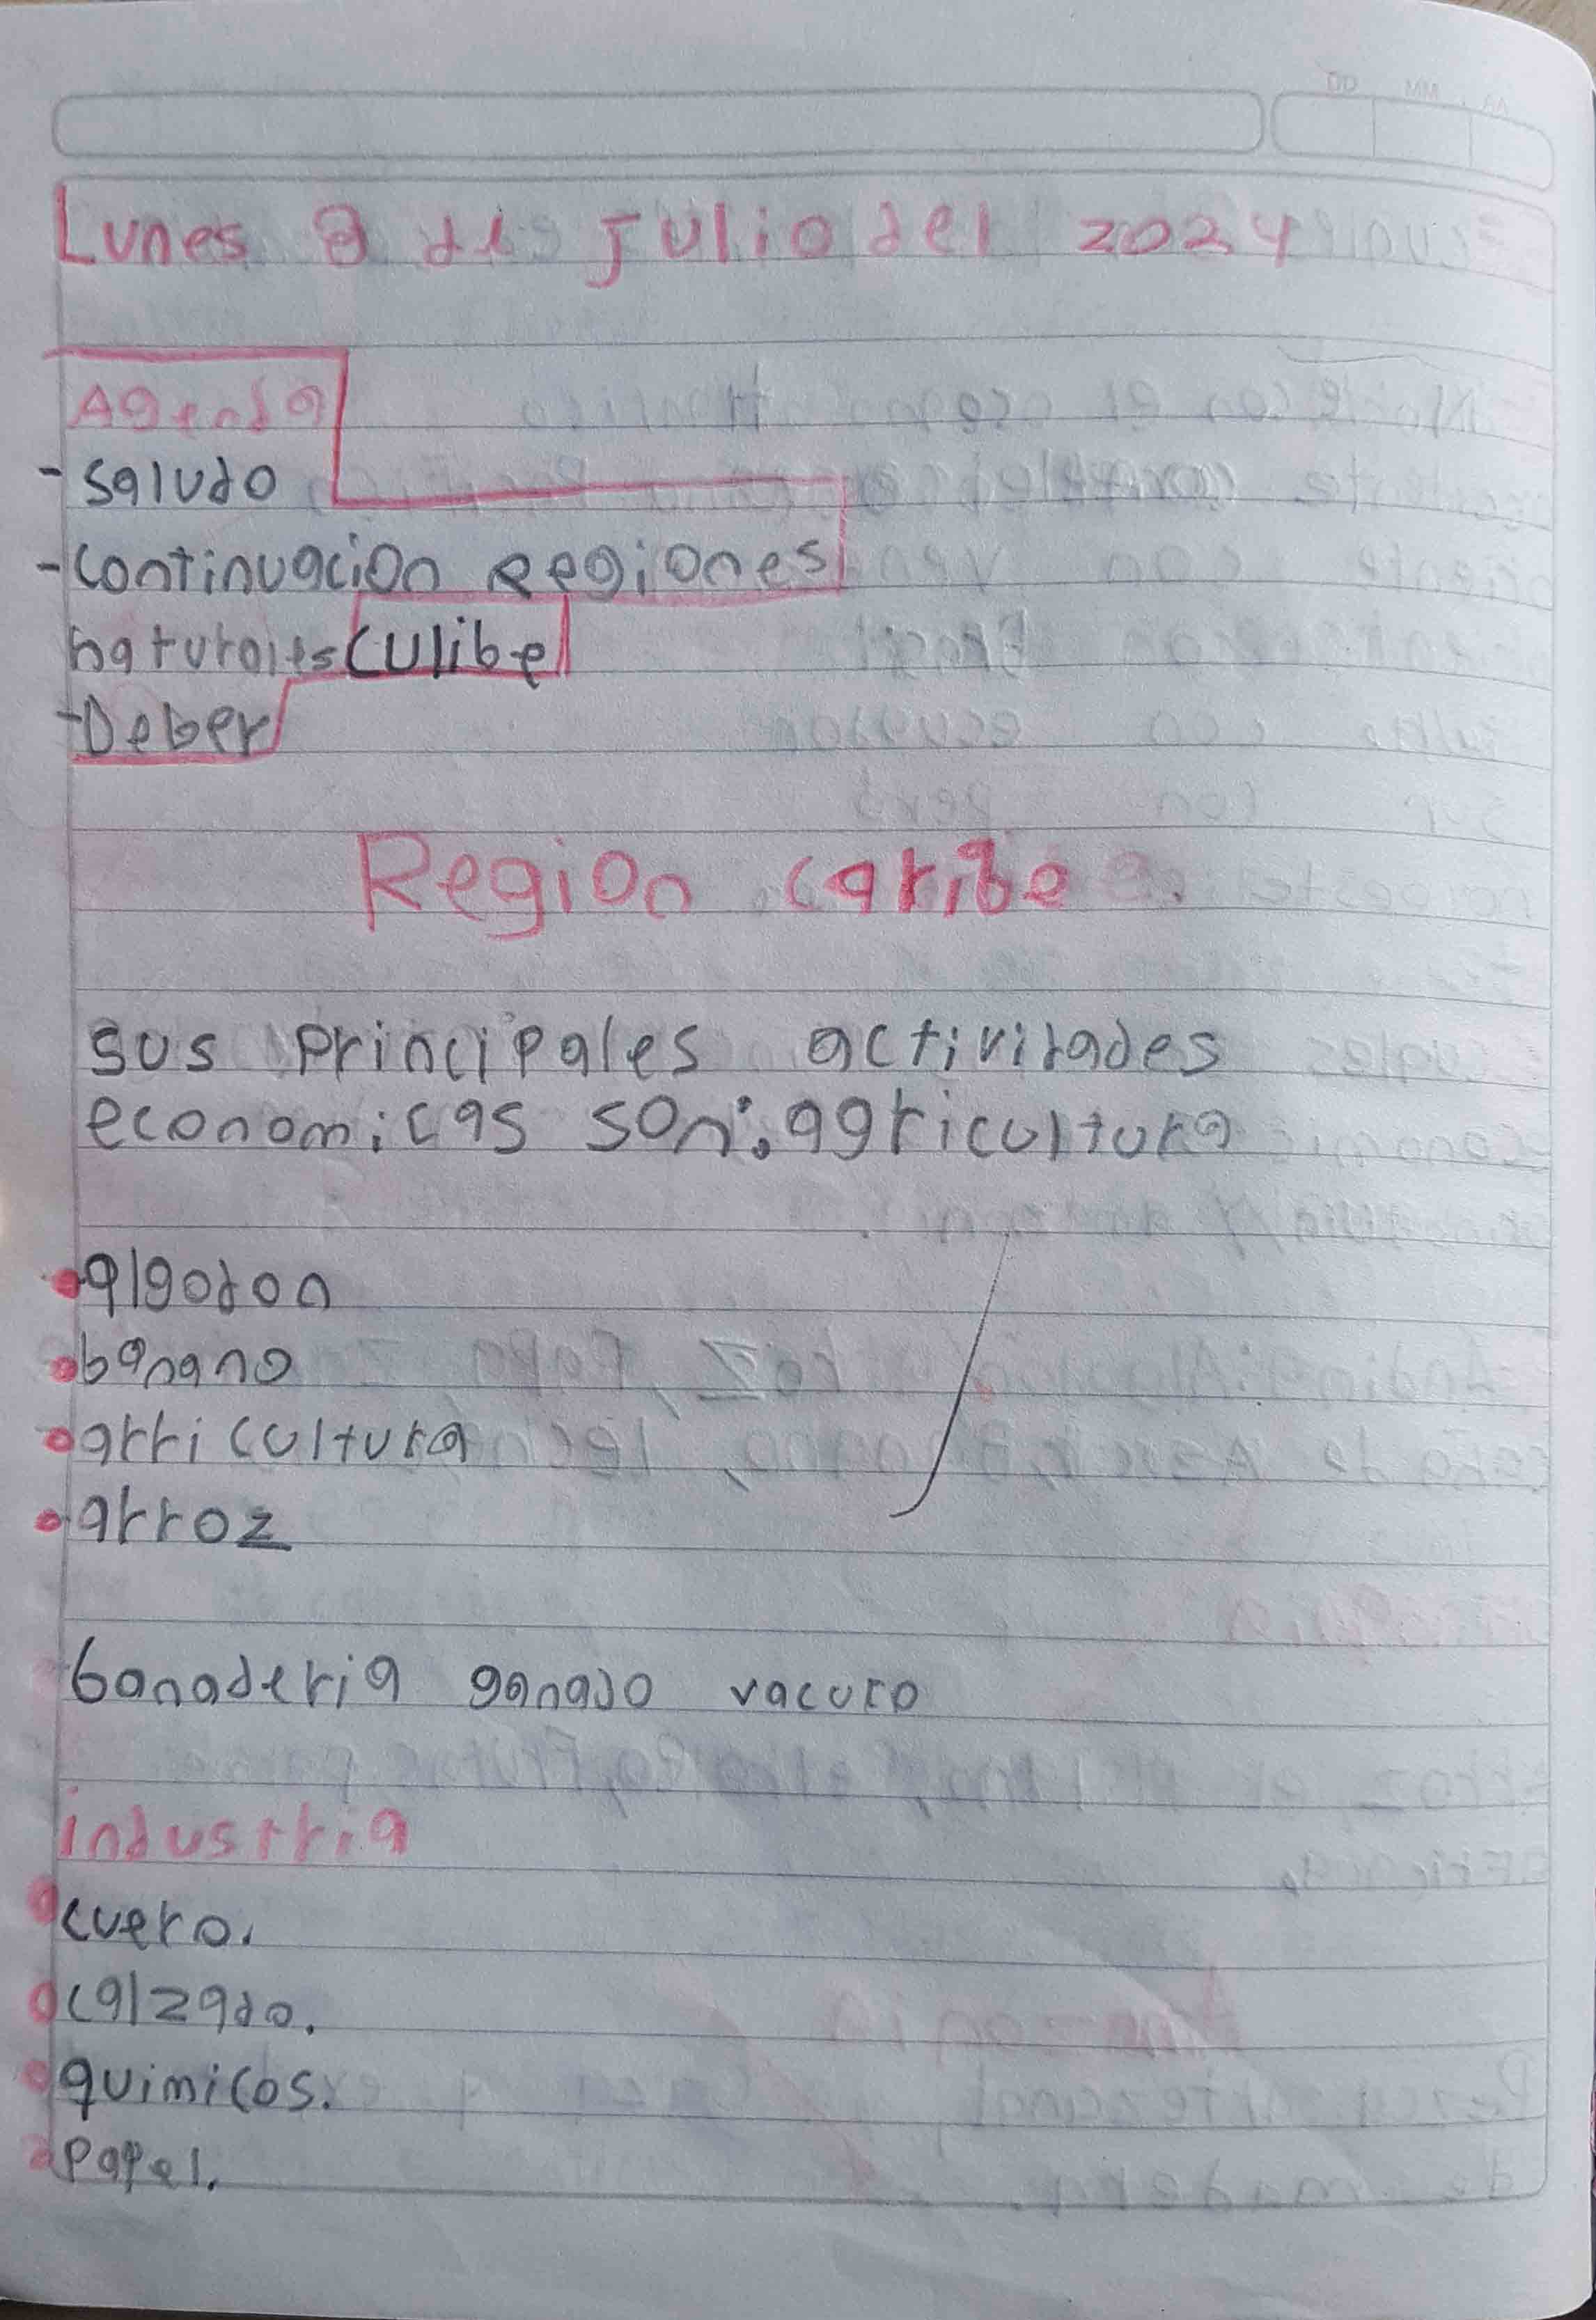 DD MM AA
Lunes 8 de Julio del 2024
Agenda
- saludo
- continuacion Regiones
naturales culibe
- Deber
Region caribe
sus principales actividades
economicas son: agricultura
algodon
banano
arricultura
arroz
Ganaderia ganado vacuro
industria
cuero.
calzado.
quimicos.
papel.